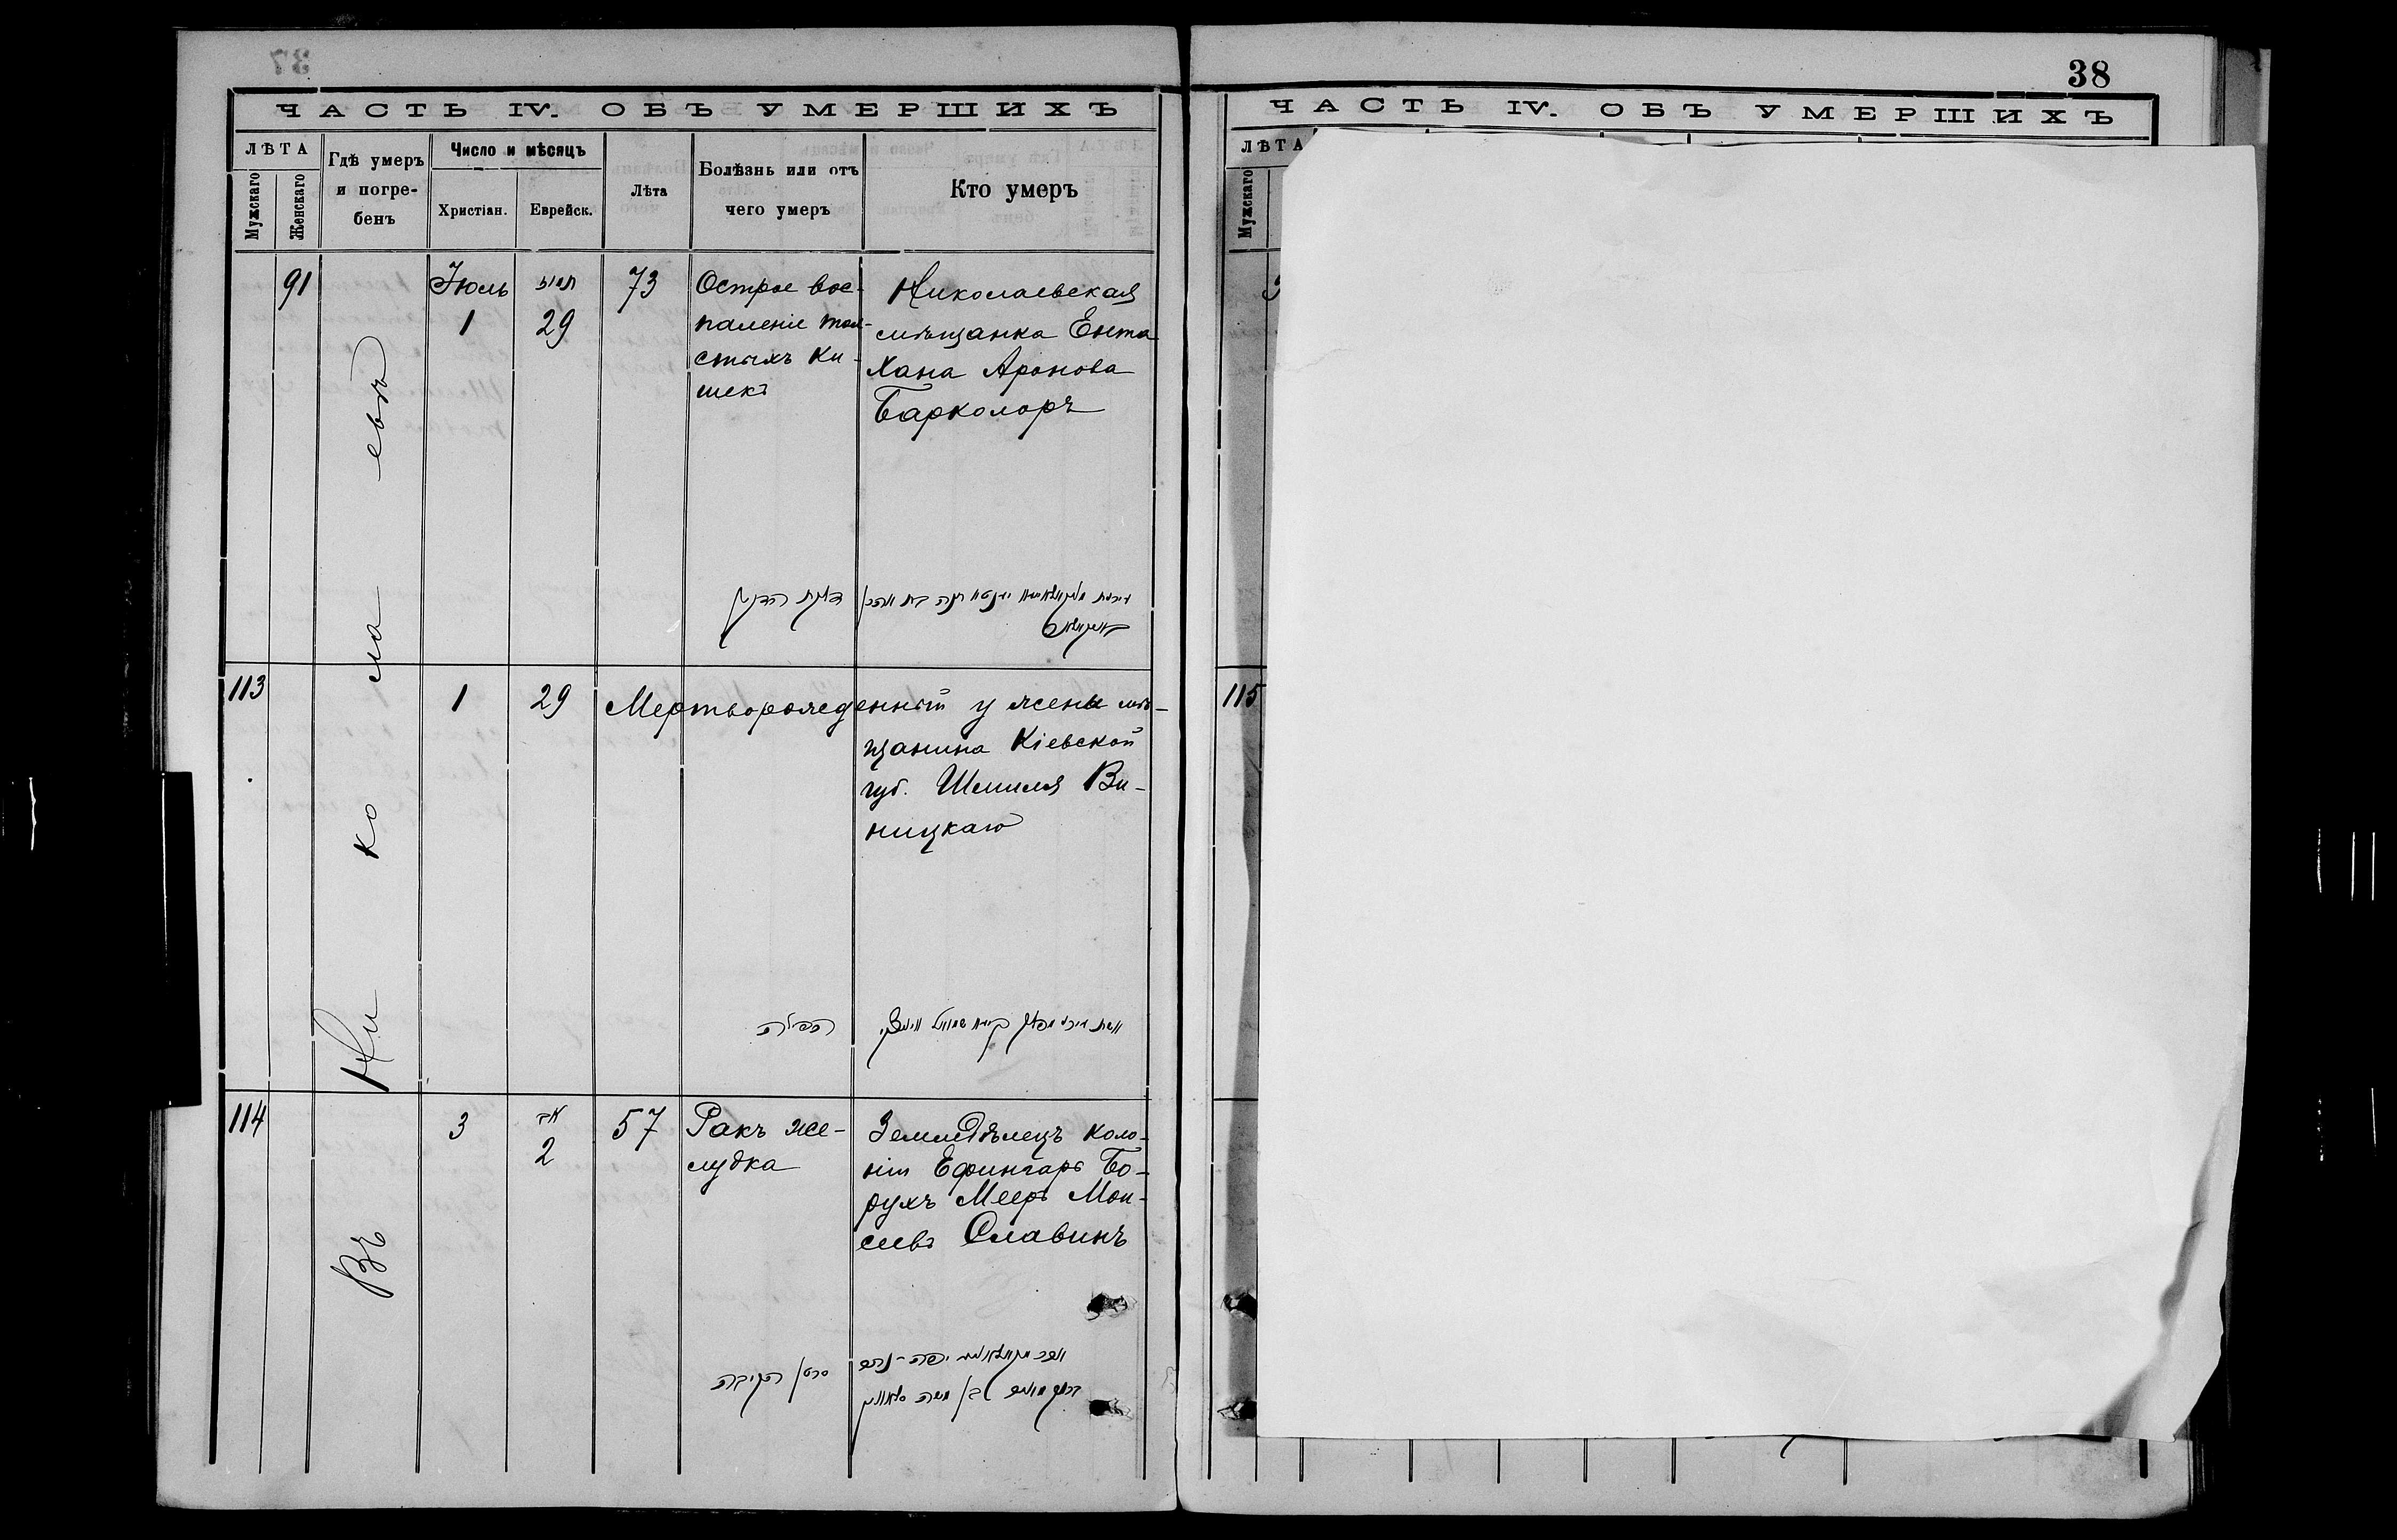 37
ЧАСТЬ IV. ОБЪ УМЕРШИХЪ
ЛѢТА
Мужскаго
Женскаго
Гдѣ умеръ
и погре-
бенъ
Число и мѣсяцъ
Христіан.
Еврейск.
Лѣта
Болѣзнь или отъ
чего умеръ
Кто умеръ
Въ Николаевѣ
91
Іюль
1
29
73
Острое вос-
паленіе тол-
стыхъ ки-
шекъ
Николаевская
мѣщанка Ента
Хана Аронова
Барколоръ
113
1
29
Мертворожденный у жены мѣ-
щанина Кіевской
губ. Шмиля Ви-
ницкаго
114
3
אב
2
57
Ракъ же-
лудка
סרטן הקיבה
Земледѣлецъ коло-
ніи Ефингаръ Бо-
рухъ Мееръ Мои-
сеевъ Славинъ
38
ЧАСТЬ IV. ОБЪ УМЕРШИХЪ
ЛѢТА
Мужскаго
115